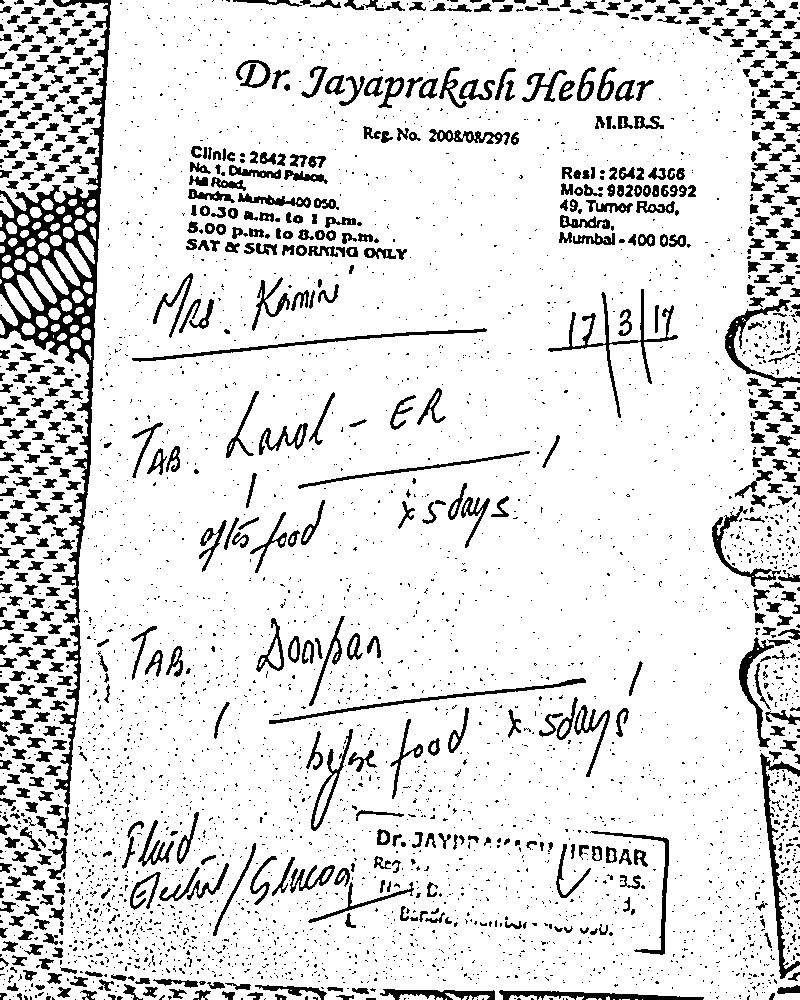 Dr. Jayaprakash Hebbar
M.B.B.S.
Reg. No. 2008/08/2976
Clinic : 2642 2767
No. 1, Diamond Palace,
Hill Road,
Bandra, Mumbai-400 050.
10.30 a.m. to 1 p.m.
5.00 p.m. to 8.00 p.m.
SAT & SUN MORNING ONLY
Resi : 2642 4366
Mob.: 9820086992
49, Turner Road,
Bandra,
Mumbai - 400 050.
Mrs. Kamini
17/3/17
TAB. Lanol - ER
1 ——— 1
after food x 5 days
TAB. Dompan
1 ——— 1
before food x 5days
Fluid
Electral/Glucose
Dr. JAYAPRAKASH HEBBAR
Reg.
B.S.
Bandra, Mumbai - 400 050.